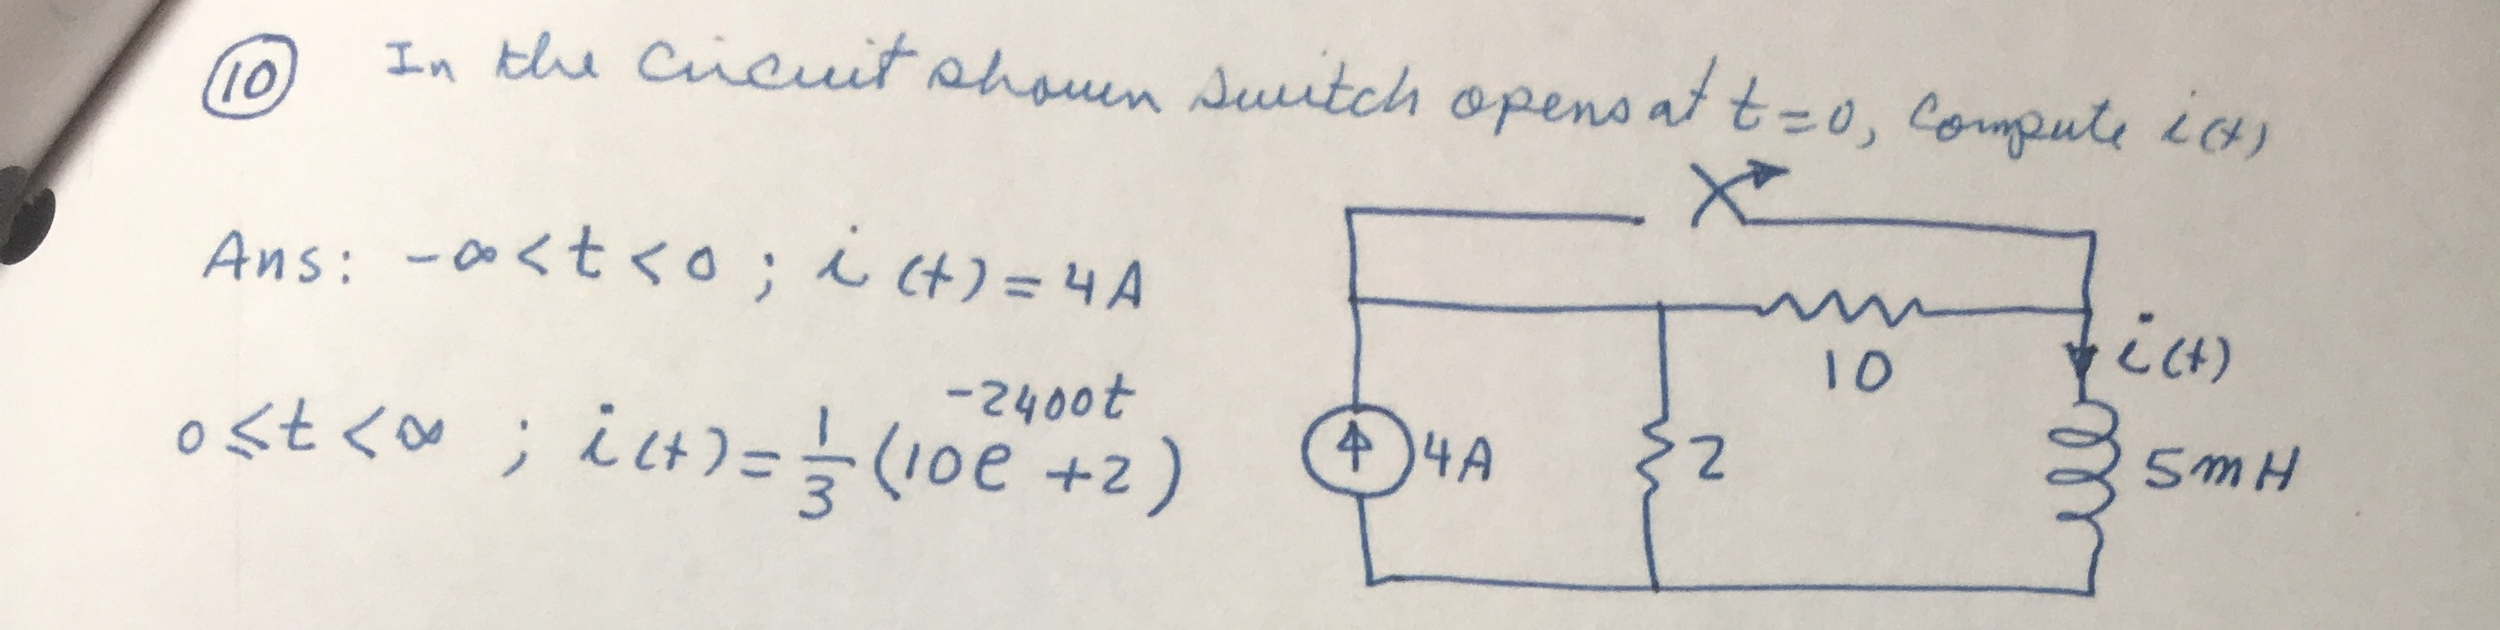 ⑩ In the circuit shown switch opens at t=0, compute i(t)
Ans: -∞<t<0; i(t)=4A
0≤t<∞; i(t)=1/3(10e^-2400t+2)
10
i(t)
4A
2
5mH